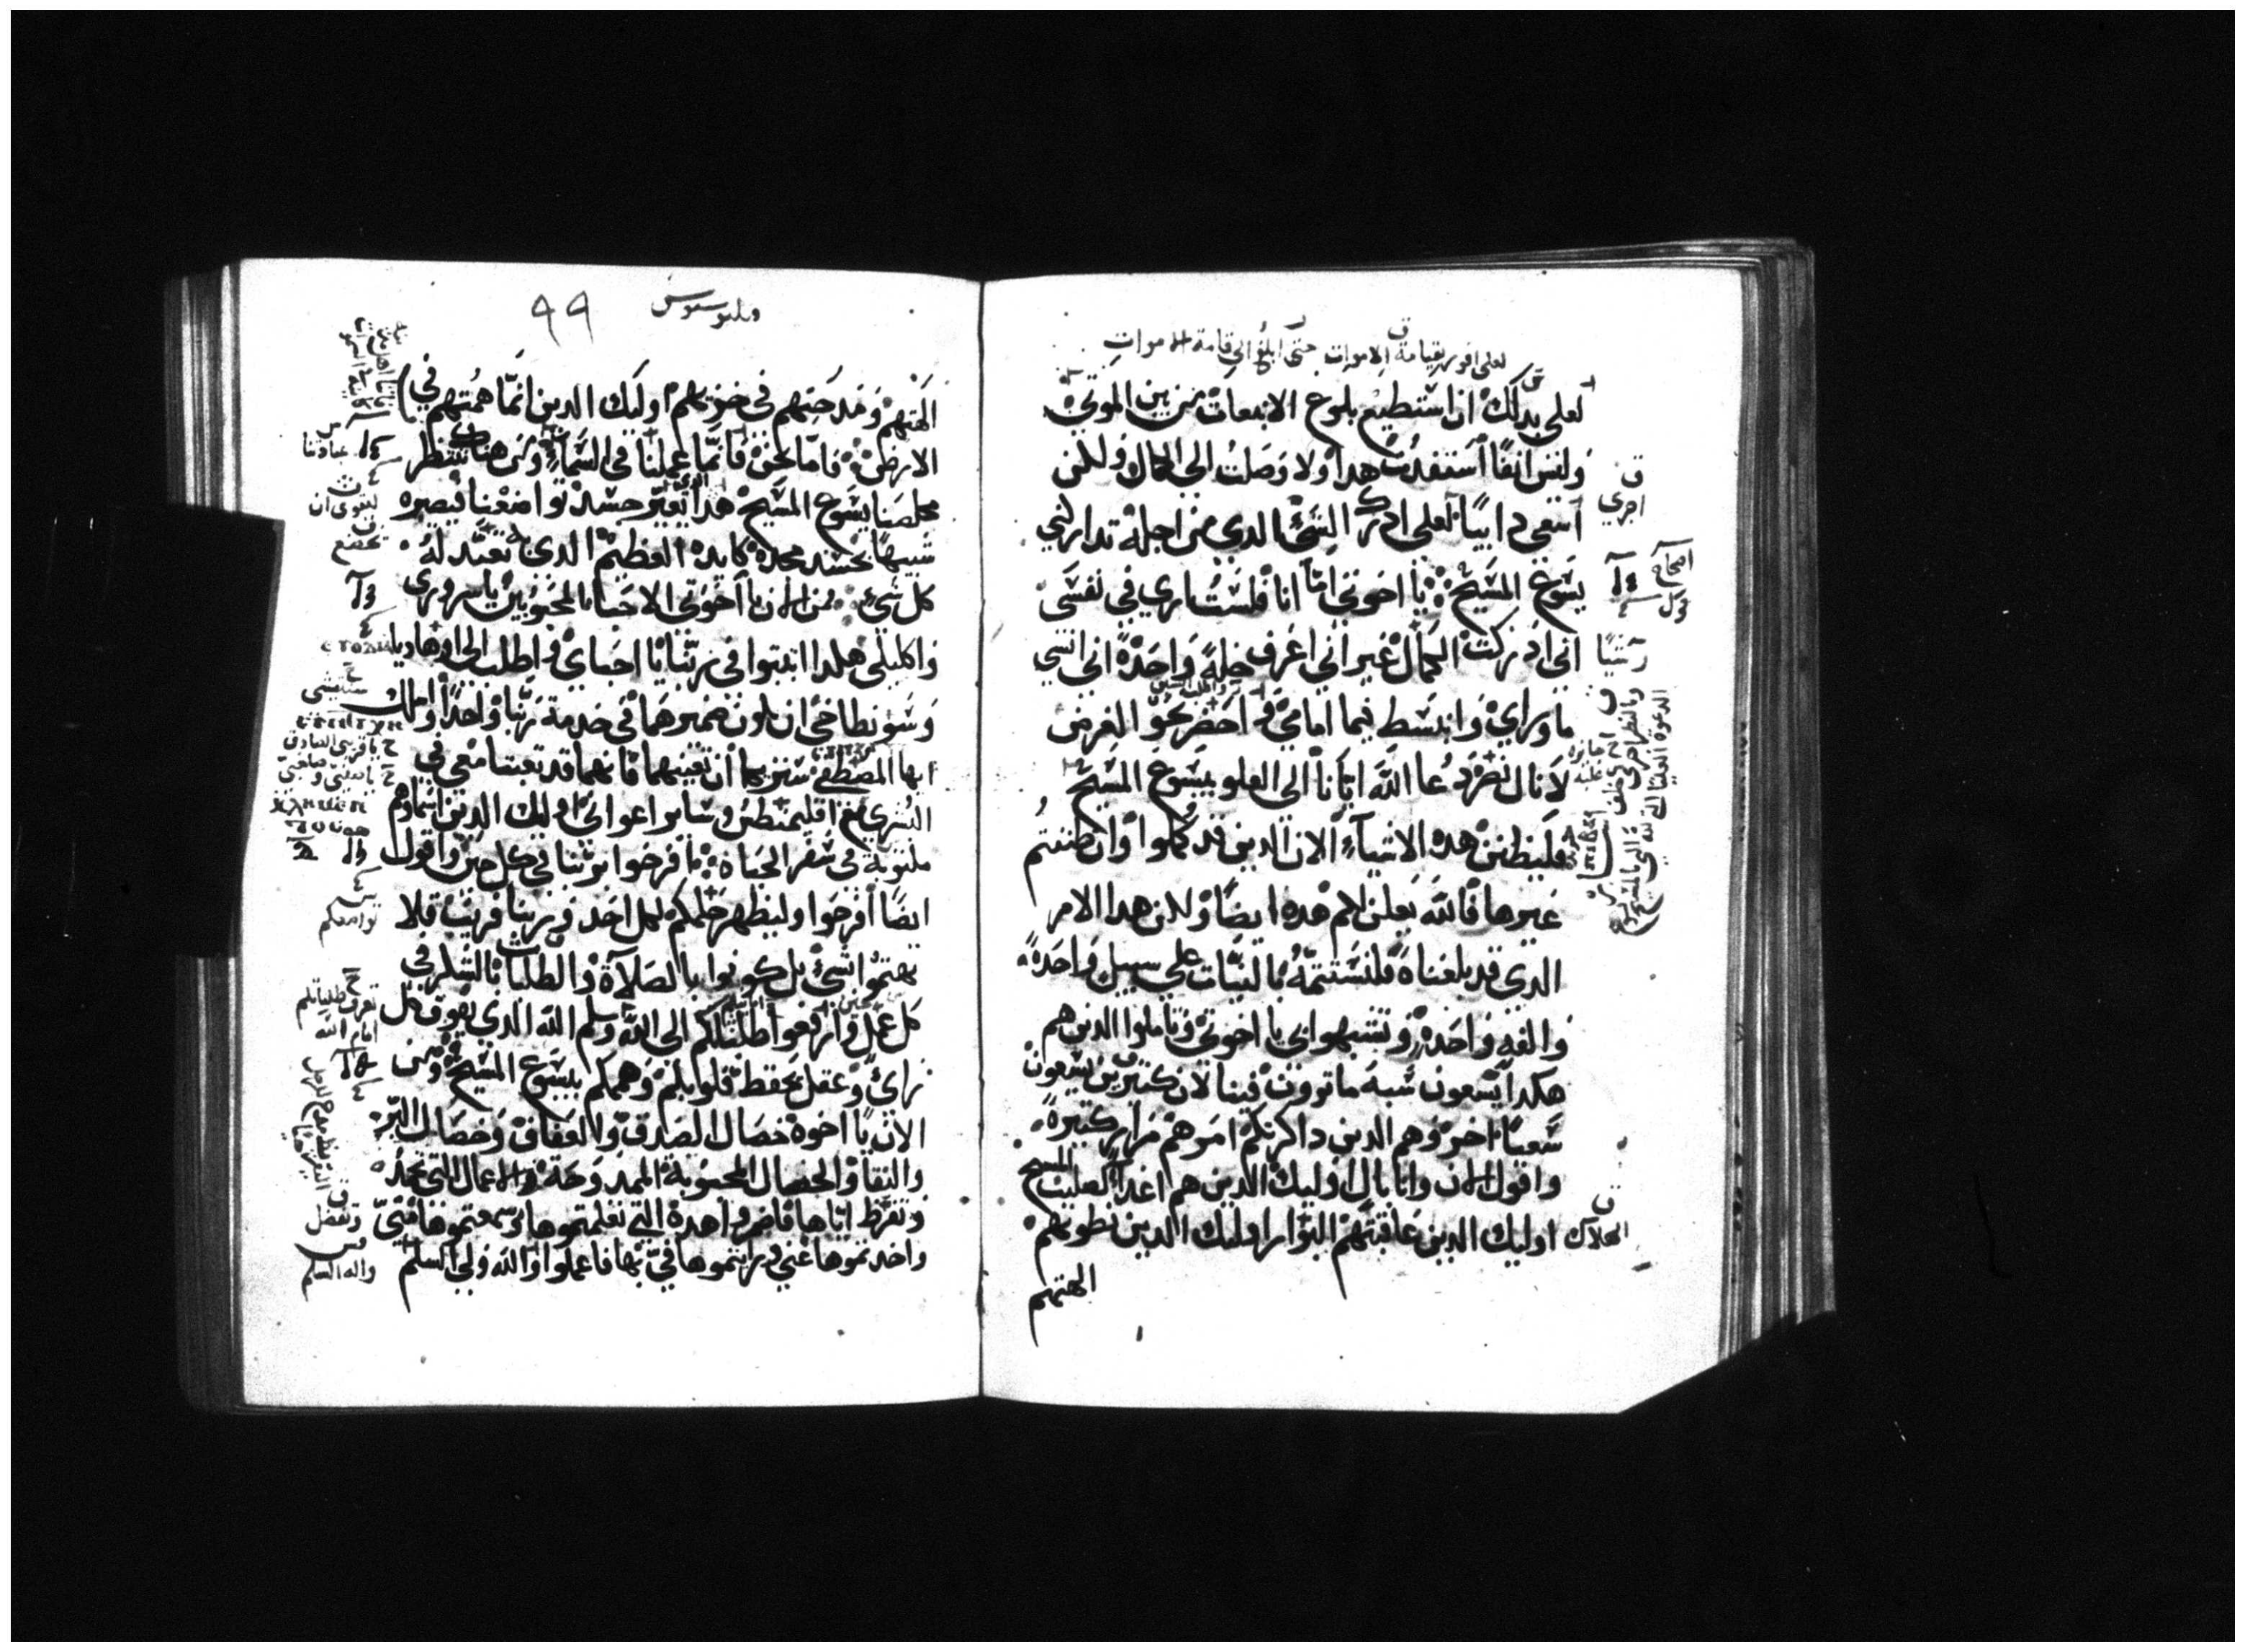 لعلي افوز بقيامة الاموات حتى ابلغ الى قامة الاموات
لعلي بدلك ان استطيع بلوغ الانبعاث من بين الموتى
وليس انفا استفدت هدا ولا وصلت الى الكمال ولكن
اسعى دايبا لعلي ادرك الشئ الدي من اجله تداركني
يشوع المسيح يا اخوتي اما انا فلست ارى في نفسي
اني ادركت الكمال غير اني اعرف خلة واحدة اني انسي
ما وراي وانبسط فيما امامي واحضر نحو الغرض
لانال نصرة دعا الله ايانا الى العلو بيشوع المسيح
فليظنن هده الاشياء الان الدين قد كملوا وان ظننتم
غيرها فالله يعلن لكم هده ايضا ولكن هدا الامر
الدي قد بلغناه فلنستتمه بالثبات على سبيل واحدة
والفة واحدة وتشبهوا بي يا اخوتي وتاملوا الدين هم
هكدا يسعون شبه ما ترون فينا لان كثيرين يسعون
سعيا اخر وهم الدين داكرتكم امرهم مرارا كثيرة
واقول الان وانا باك اوليك الدين هم اعدا لصليب المسيح
اوليك الدين عاقبتهم البوار اوليك الدين بطونهم
الهتهم
اجري
اصحاح
الهلاك
فيلبوسيوس
99
الهتهم ومدحتهم في خزيهم اوليك الدين انما همتهم في
الارض فاما نحن فانما عملنا في السماء ومن هناك ننتظر
مخلصنا يشوع المسيح هدا يغير جسد تواضعنا فيصيره
شبيها بجسد مجده كايده العظيم الدي به تعبد له
كل شئ من الان يا اخوتي الاحبا المحبوبين يا سروري
واكليلي هكدا اثبتوا في ربنا يا احباي واطلب الى اوهاديا
وسونطاخي ان يكون ضميرهما في خدمة ربنا واحدا واسلك
ايها المصطفى شنزيكا ان تعينهما فانهما قد تعبتا معي في
البشرى مع اقليمنطس وساير اعواني اوليك الدين اسماوهم
مكتوبة في سفر الحياة افرحوا بربنا في كل حين واقول
ايضا افرحوا وليظهر حلمكم لكل احد وربنا قريب فلا
تهتموا بشئ بل كونوا بالصلاة والطلبات بالشكر في
كل عمل وارفعوا طلباتكم الى الله وسلم الله الدي يفوق كل
راي وعقل يحفظ قلوبكم وهممكم بيشوع المسيح ومن
الان يا اخوة خصال الصدق والعفاف وخصال البر
والنقا والخصال المحبوبة الممدوحة والاعمال التي تمجد
وتقرظ اياها فاضمروا هده التي تعلمتموها وسمعتموها مني
واخدتموها عني ورايتموها في بها فاعملوا والله ولي السلم
عبادتنا
تخضع
تواضعكم
تعرف طلباتكم
امام الله
واله السلم